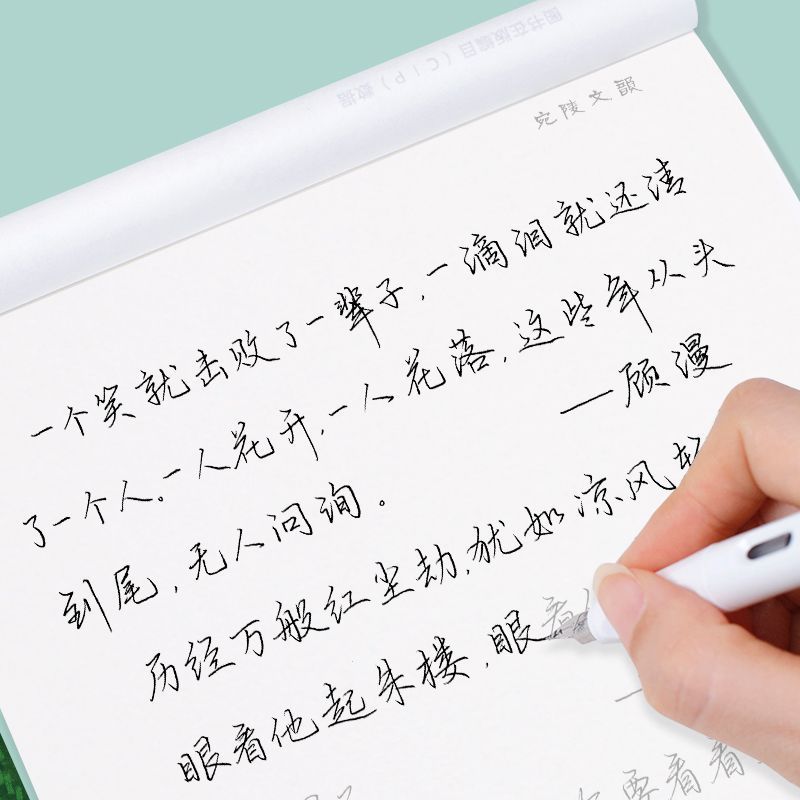 图书在版编目（CIP）数据
宛陵文韻
一个笑就击败了一辈子,一滴泪就还清
了一个人。一人花开,一人花落,这些年从头
到尾,无人问询。
——顾漫
历经万般红尘劫,犹如凉风轻
眼看他起朱楼,眼看
要看着